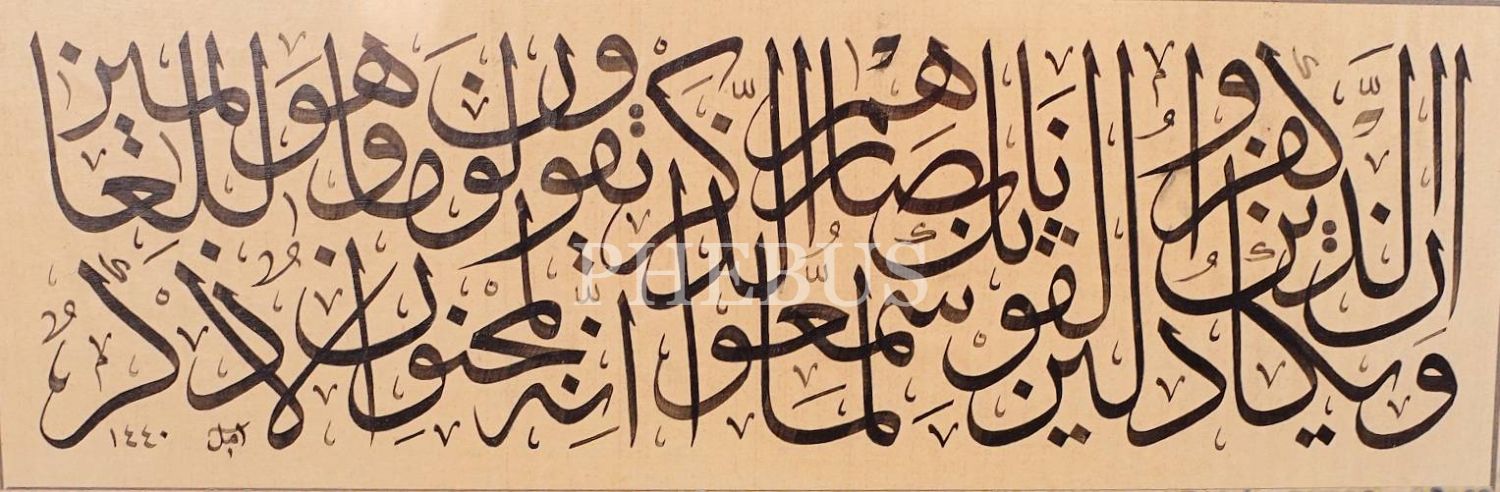 وَإِن يَكَادُ الَّذِينَ كَفَرُوا لَيُزْلِقُونَكَ بِأَبْصَارِهِمْ لَمَّا سَمِعُوا الذِّكْرَ وَيَقُولُونَ إِنَّهُ لَمَجْنُونٌ وَمَا هُوَ إِلَّا ذِكْرٌ لِلْعَالَمِينَ
١٤٤٠
PHEBUS